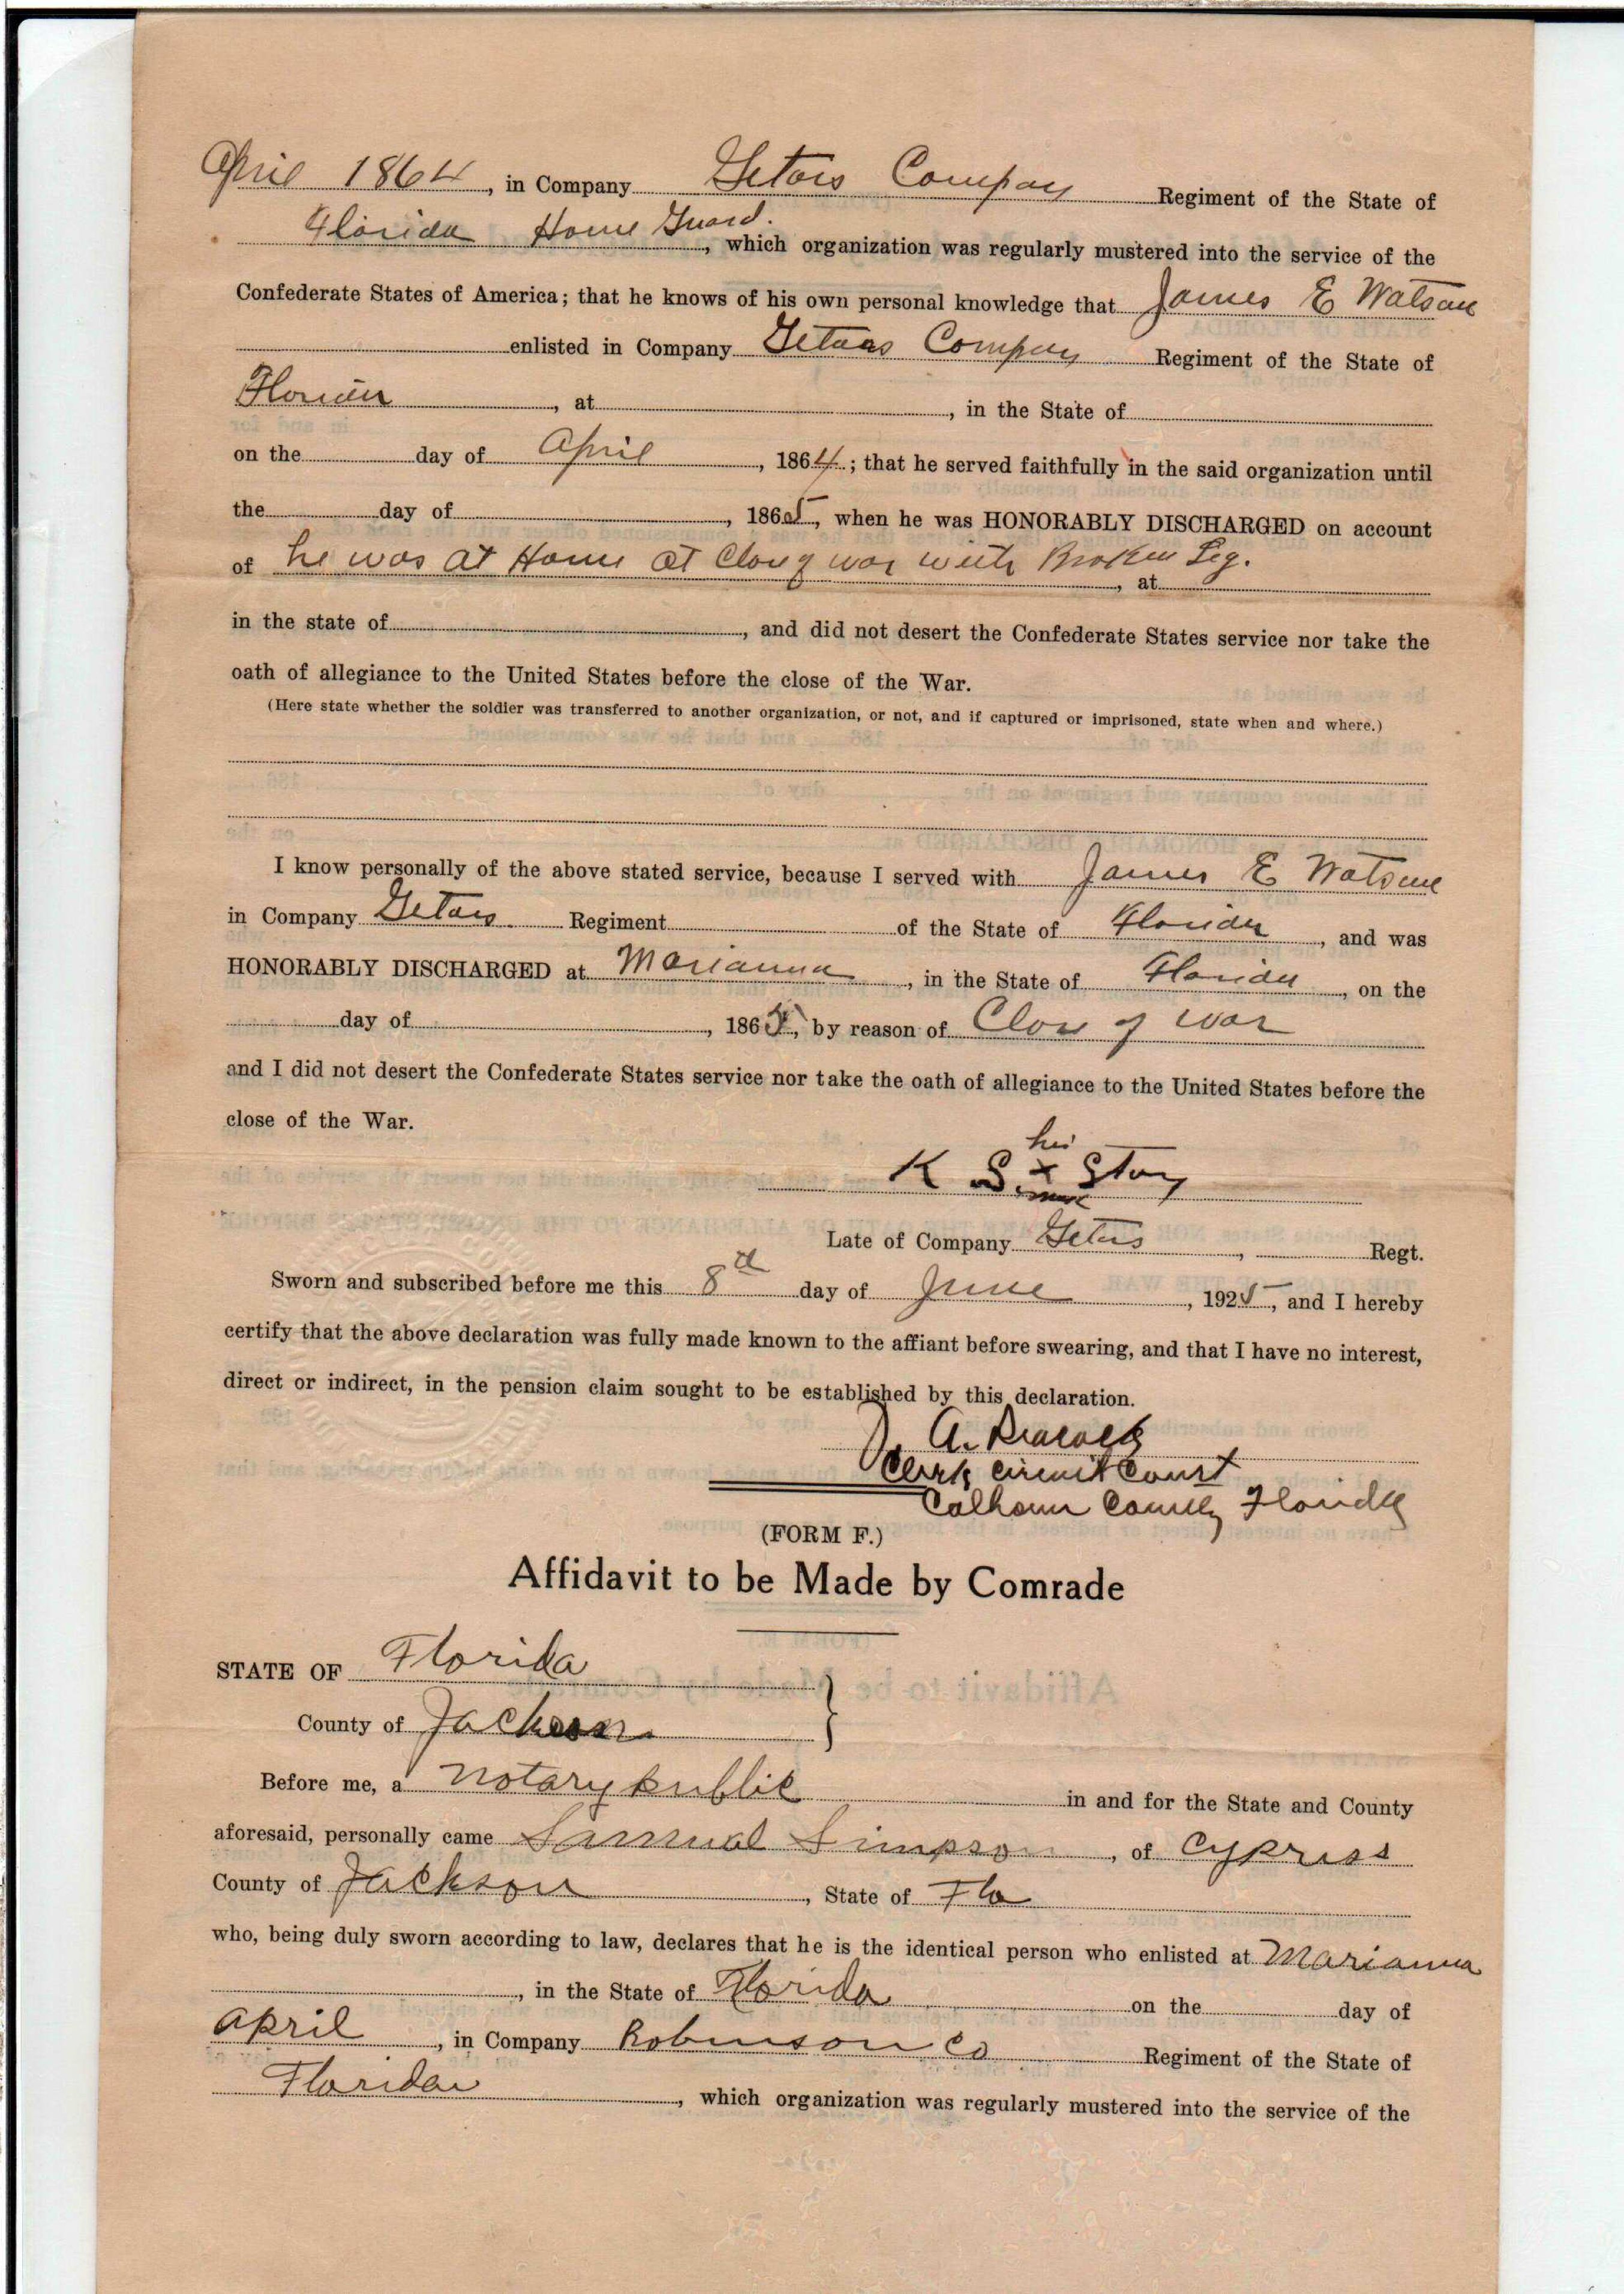 April 1864, in Company Getars Company Regiment of the State of
Florida Home Guard., which organization was regularly mustered into the service of the
Confederate States of America; that he knows of his own personal knowledge that James E Watson
enlisted in Company Getars Company Regiment of the State of
Florida, at , in the State of
on the day of April, 1864; that he served faithfully in the said organization until
the day of , 1865, when he was HONORABLY DISCHARGED on account
of he was at Home at Close of war with Broken Leg. , at
in the state of , and did not desert the Confederate States service nor take the
oath of allegiance to the United States before the close of the War.
(Here state whether the soldier was transferred to another organization, or not, and if captured or imprisoned, state when and where.)
I know personally of the above stated service, because I served with James E Watson
in Company Getars Regiment of the State of Florida, and was
HONORABLY DISCHARGED at Marianna, in the State of Florida, on the
day of , 1865, by reason of Close of war
and I did not desert the Confederate States service nor take the oath of allegiance to the United States before the
close of the War.
his
K S. x Story
mark
Late of Company Getars, Regt.
Sworn and subscribed before me this 8th day of June, 1925, and I hereby
certify that the above declaration was fully made known to the affiant before swearing, and that I have no interest,
direct or indirect, in the pension claim sought to be established by this declaration.
J. A. Peacock
Clerk Circuit Court
Calhoun County Florida
(FORM F.)
Affidavit to be Made by Comrade
STATE OF Florida
County of Jackson
Before me, a Notary public in and for the State and County
aforesaid, personally came Samual Simpson, of Cypress
County of Jackson, State of Fla
who, being duly sworn according to law, declares that he is the identical person who enlisted at Marianna
, in the State of Florida on the day of
April, in Company Robinson Co Regiment of the State of
Florida, which organization was regularly mustered into the service of the